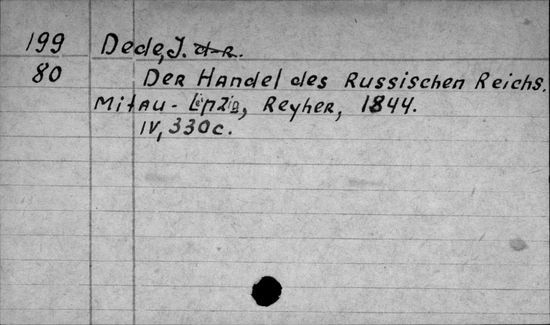 199 Dede, J.
80 Der Handel des Russischen Reichs.
Mitau - Leipzig, Reyher, 1844.
IV, 330c.